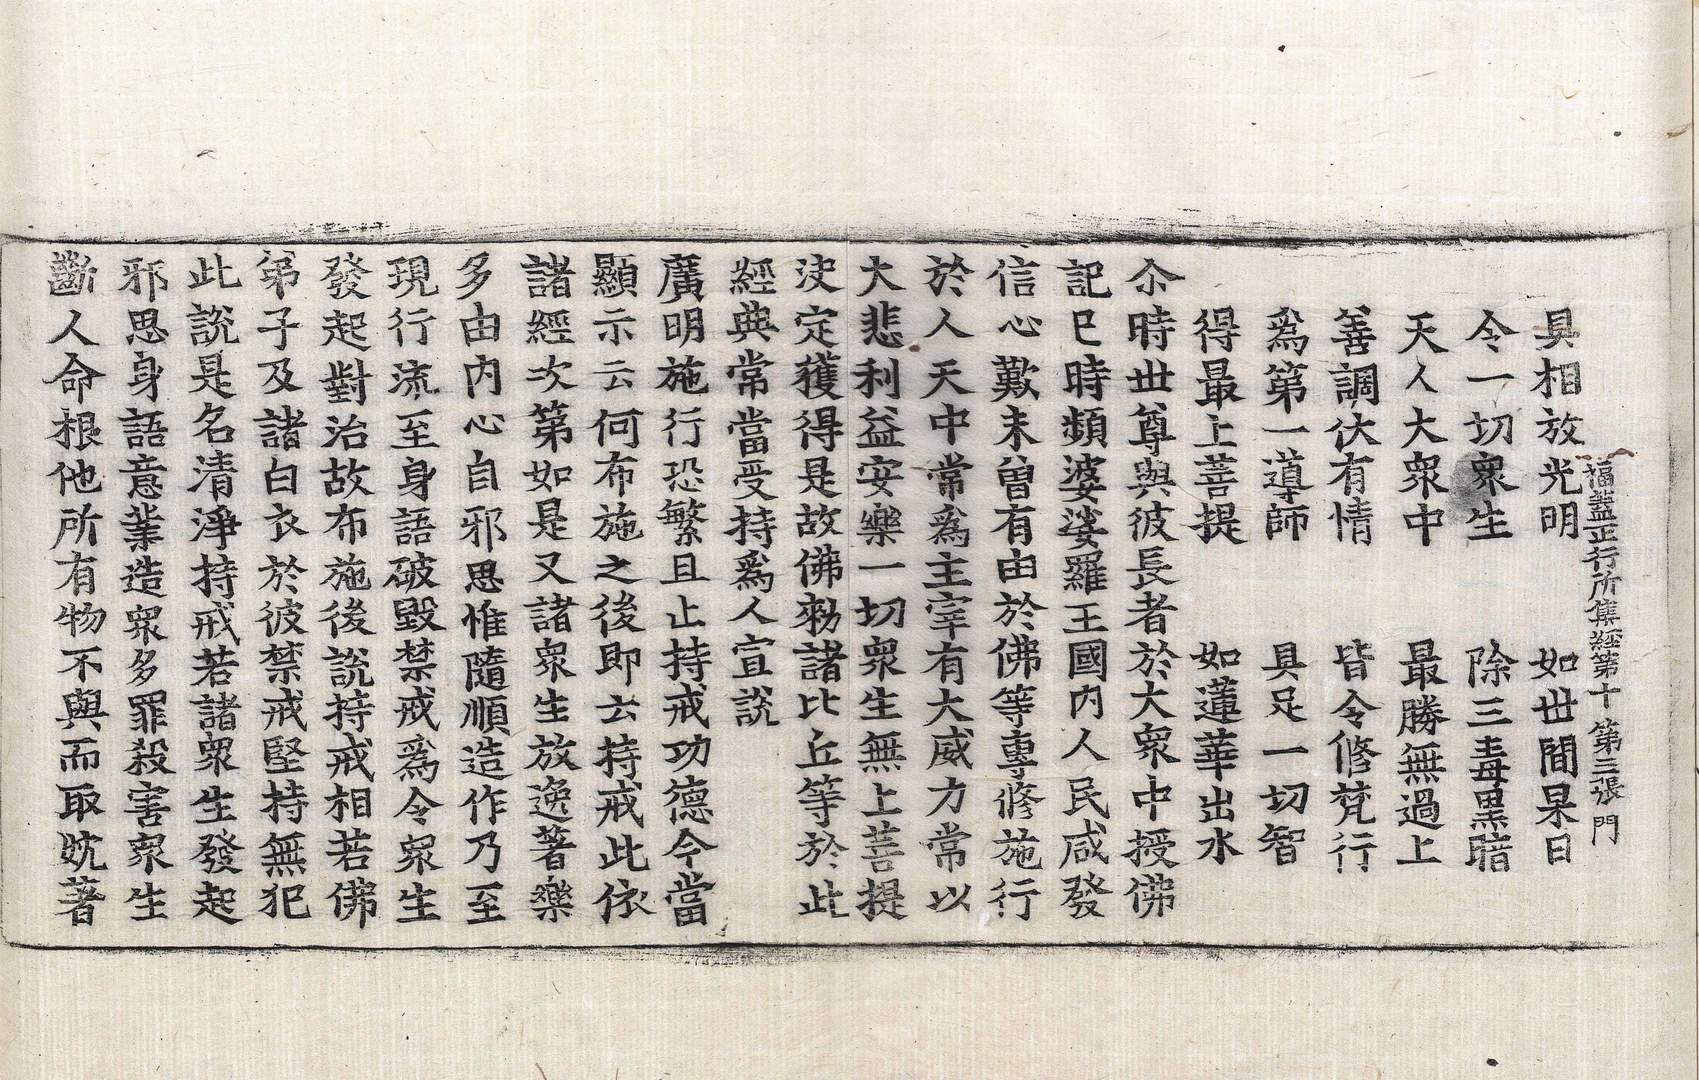 福蓋正行所集經第十 第三張 門
具相放光明 如世間杲日
令一切衆生 除三毒黑暗
天人大衆中 最勝無過上
善調伏有情 皆令修梵行
爲第一導師 具足一切智
得最上菩提 如蓮華出水
尒時世尊與彼長者於大衆中授佛
記已時頻婆娑羅王國內人民咸發
信心歎未曾有由於佛等專修施行
於人天中常爲主宰有大威力常以
大悲利益安樂一切衆生無上菩提
決定獲得是故佛勑諸比丘等於此
經典常當受持爲人宣說
廣明施行恐繁且止持戒功德今當
顯示云何布施之後即云持戒此依
諸經次第如是又諸衆生放逸著樂
多由內心自邪思惟隨順造作乃至
現行流至身語破毀禁戒爲令衆生
發起對治故布施後說持戒相若佛
弟子及諸白衣於彼禁戒堅持無犯
此說是名清淨持戒若諸衆生發起
邪思身語意業造衆多罪殺害衆生
斷人命根他所有物不與而取躭著